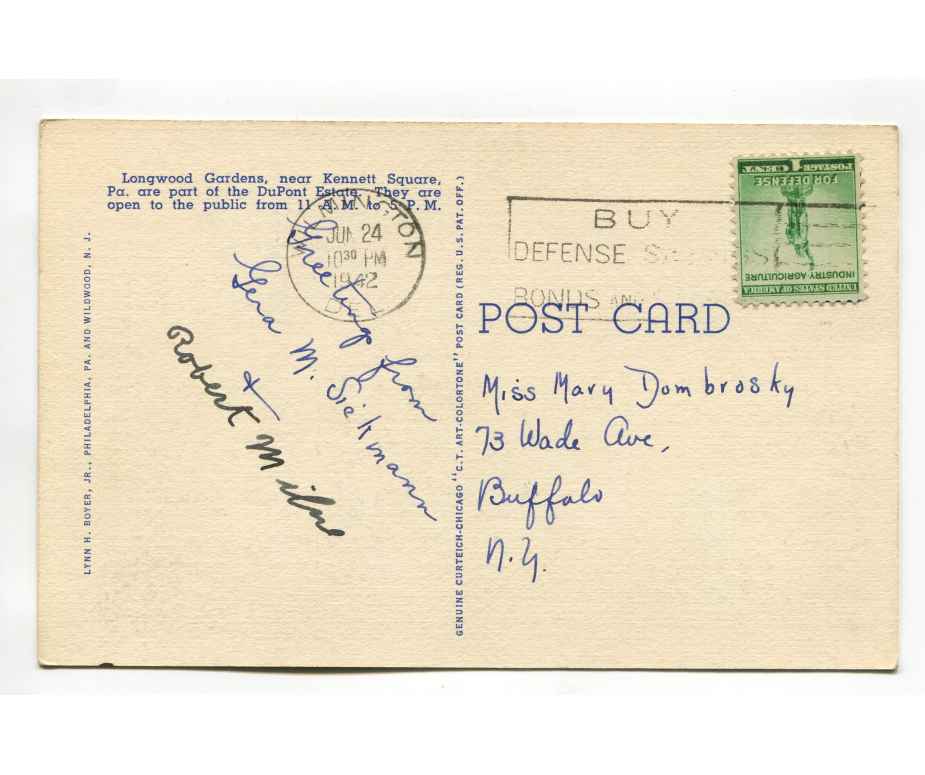 Longwood Gardens, near Kennett Square,
Pa. are part of the DuPont Estate. They are
open to the public from 11 A.M. to 5 P.M.
LYNN H. BOYER, JR., PHILADELPHIA, PA. AND WILDWOOD, N. J.
Greetings from
Gena M. Sickmann
+
Robert Milne
MINGTON
JUN 24
10 30 PM
1942
GENUINE CURTEICH-CHICAGO "C.T. ART-COLORTONE" POST CARD (REG. U.S. PAT. OFF.)
BUY
DEFENSE
BONDS AND
UNITED STATES OF AMERICA
INDUSTRY AGRICULTURE
FOR DEFENSE
1 CENT POSTAGE
POST CARD
Miss Mary Dombrosky
73 Wade Ave,
Buffalo
N.Y.